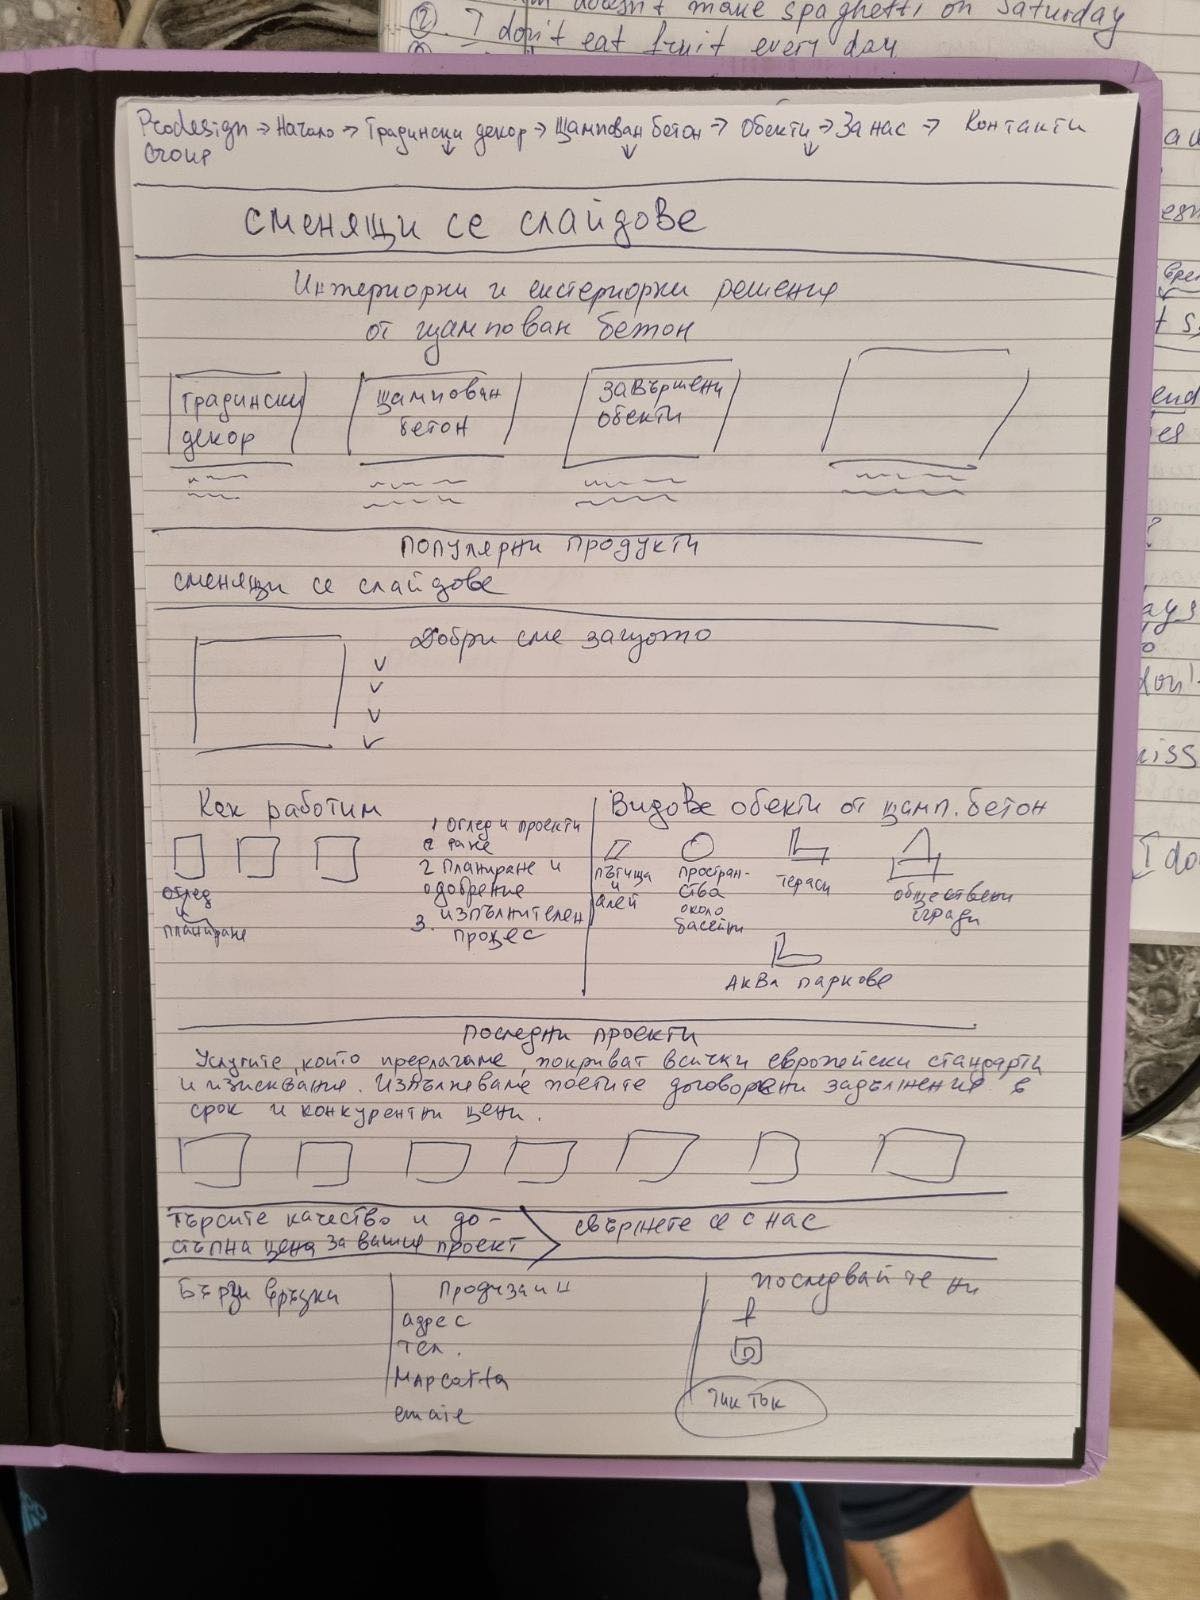 doesn't make spaghetti on Saturday
②. I don't eat fruit every day
Prodesign → Начало → Градински декор → Щампован бетон → Обекти → За нас → Контакти
Group
сменящи се слайдове
Интериорни и екстериорни решения
от щампован бетон
градински
декор
щампован
бетон
завършени
обекти
популярни продукти
сменящи се слайдове
Добри сме защото
Как работим
оглед
и
планиране
1 Оглед и проекти
ране
2 Планиране и
одобрение
3. изпълнителен
процес
Видове обекти от щамп. бетон
пътища
и
алеи
простран-
ства
около
басейни
тераси
обществени
сгради
аква паркове
последни проекти
Услугите, които предлагаме, покриват всички европейски стандарти
и изисквания. Изпълняваме поетите договорени задължения в
срок и конкурентни цени.
търсите качество и до-
стъпна цена за вашия проект
свържете се с нас
Бързи връзки
адрес
тел.
email
последвайте ни
Тик Ток